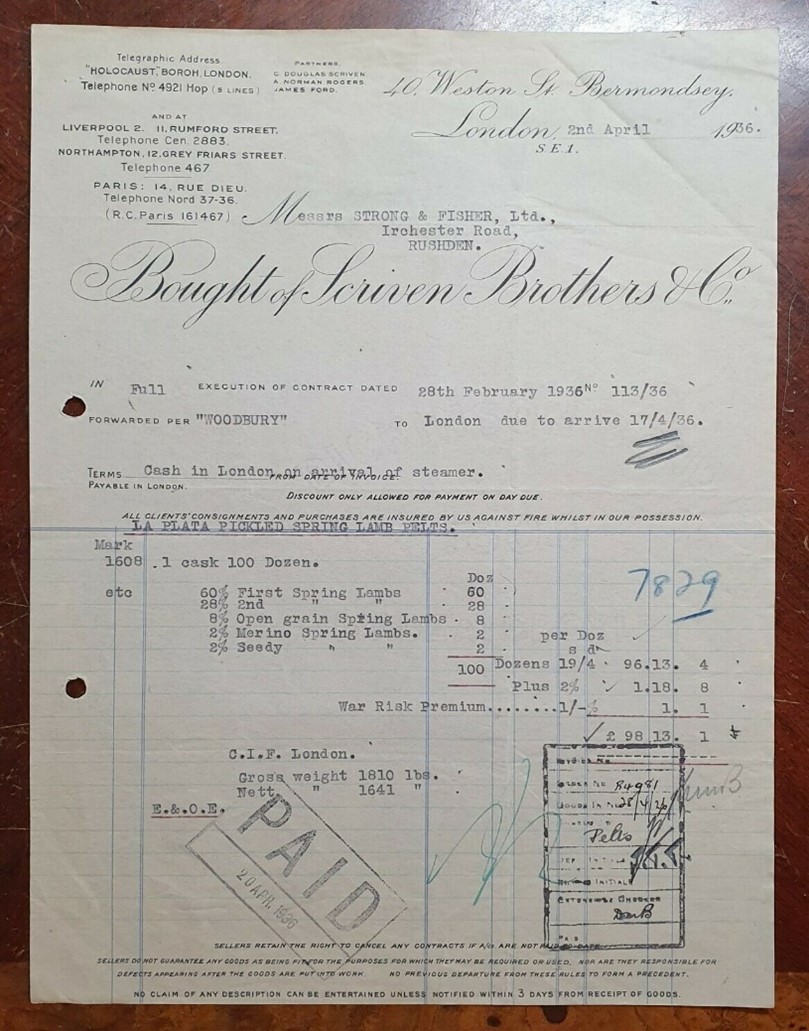 Telegraphic Address
"HOLOCAUST," BOROH, LONDON.
Telephone No 4921 Hop (5 LINES)
PARTNERS.
C. DOUGLAS SCRIVEN
A. NORMAN ROGERS
JAMES FORD.
40, Weston St. Bermondsey,
London, 2nd April 1936.
S.E.1.
AND AT
LIVERPOOL 2. 11, RUMFORD STREET.
Telephone Cen. 2883.
NORTHAMPTON, 12, GREY FRIARS STREET.
Telephone 467
PARIS: 14, RUE DIEU.
Telephone Nord 37-36.
(R.C. Paris 161467)
Messrs STRONG & FISHER, Ltd.,
Irchester Road,
RUSHDEN.
Bought of Scriven Brothers & Co.,
IN Full EXECUTION OF CONTRACT DATED 28th February 1936 No 113/36
FORWARDED PER "WOODBURY" TO London due to arrive 17/4/36.
TERMS Cash in London on arrival of steamer.
FROM DATE OF INVOICE.
PAYABLE IN LONDON.
DISCOUNT ONLY ALLOWED FOR PAYMENT ON DAY DUE.
ALL CLIENTS' CONSIGNMENTS AND PURCHASES ARE INSURED BY US AGAINST FIRE WHILST IN OUR POSSESSION.
LA PLATA PICKLED SPRING LAMB PELTS.
Mark
1608 .1 cask 100 Dozen.
7829
Doz
etc 60% First Spring Lambs 60
28% 2nd " " 28
8% Open grain Spring Lambs 8
2% Merino Spring Lambs. 2 per Doz
2% Seedy " " 2 s d
100 Dozens 19/4 96.13. 4
Plus 2% 1.18. 8
War Risk Premium........1/-% 1. 1
£ 98.13. 1
C.I.F. London.
Gross weight 1810 lbs.
Nett. " 1641 "
E.&.O.E.
INVOICE No
ORDER No 84981
GOODS IN No
Pelts
INITIALS
EXTENSIONS CHECKED
PAID
PAID
20 APR. 1936
SELLERS RETAIN THE RIGHT TO CANCEL ANY CONTRACTS IF A/cs ARE NOT PAID TO DATE
SELLERS DO NOT GUARANTEE ANY GOODS AS BEING FIT FOR THE PURPOSES FOR WHICH THEY MAY BE REQUIRED OR USED, NOR ARE THEY RESPONSIBLE FOR
DEFECTS APPEARING AFTER THE GOODS ARE PUT INTO WORK. NO PREVIOUS DEPARTURE FROM THESE RULES TO FORM A PRECEDENT.
NO CLAIM OF ANY DESCRIPTION CAN BE ENTERTAINED UNLESS NOTIFIED WITHIN 3 DAYS FROM RECEIPT OF GOODS.